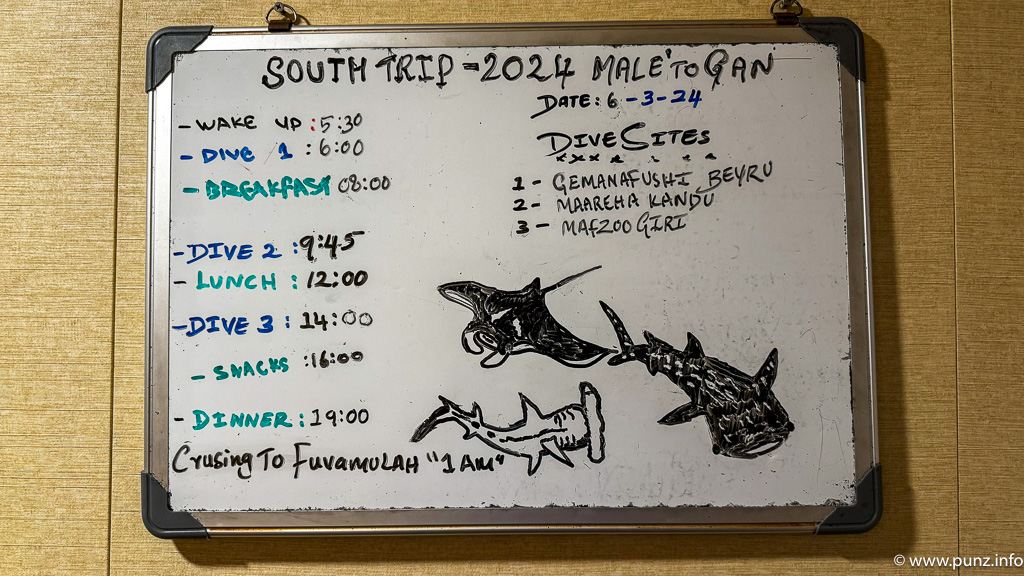 SOUTH TRIP - 2024 MALE' TO GAN
DATE: 6 - 3 - 24
- WAKE UP : 5:30
- DIVE 1 : 6:00
- BREAKFAST 08:00
- DIVE 2 : 9:45
- LUNCH : 12:00
- DIVE 3 : 14:00
- SNACKS : 16:00
- DINNER : 19:00
Crusing To Fuvamulah "1 AM"
DIVE SITES
1 - GEMANAFUSHI BEYRU
2 - MAAREHA KANDU
3 - MAFZOO GIRI
© www.punz.info